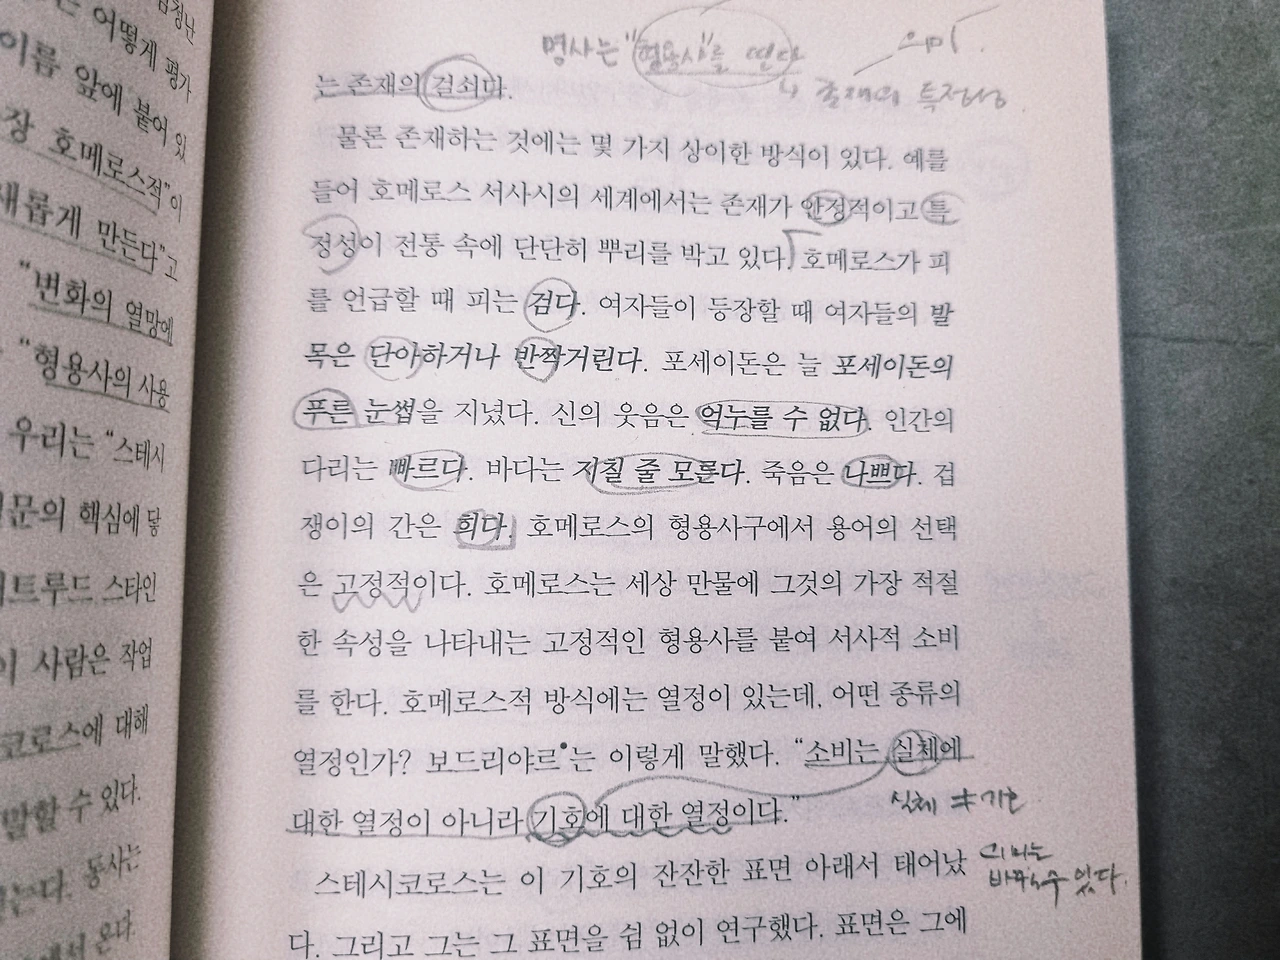 검정난
는 어떻게 평가
이름 앞에 붙어 있
장 호메로스적”이
새롭게 만든다”고
“변화의 열망에
“형용사의 사용
우리는 “스테시
문의 핵심에 닿
트루드 스타인
이 사람은 작업
코로스에 대해
말할 수 있다.
동사는
에서 온다.
명사는 “형용사”를 띤다
의미.
↳ 존재의 특정성.
는 존재의 걸쇠다.
물론 존재하는 것에는 몇 가지 상이한 방식이 있다. 예를
들어 호메로스 서사시의 세계에서는 존재가 안정적이고 특
정성이 전통 속에 단단히 뿌리를 박고 있다. 호메로스가 피
를 언급할 때 피는 검다. 여자들이 등장할 때 여자들의 발
목은 단아하거나 반짝거린다. 포세이돈은 늘 포세이돈의
푸른 눈썹을 지녔다. 신의 웃음은 억누를 수 없다. 인간의
다리는 빠르다. 바다는 지칠 줄 모른다. 죽음은 나쁘다. 겁
쟁이의 간은 희다. 호메로스의 형용사구에서 용어의 선택
은 고정적이다. 호메로스는 세상 만물에 그것의 가장 적절
한 속성을 나타내는 고정적인 형용사를 붙여 서사적 소비
를 한다. 호메로스적 방식에는 열정이 있는데, 어떤 종류의
열정인가? 보드리야르•는 이렇게 말했다. “소비는 실체에
대한 열정이 아니라 기호에 대한 열정이다.”
실체 ≠ 기호
스테시코로스는 이 기호의 잔잔한 표면 아래서 태어났
의미는
바뀔 수 있다.
다. 그리고 그는 그 표면을 쉼 없이 연구했다. 표면은 그에